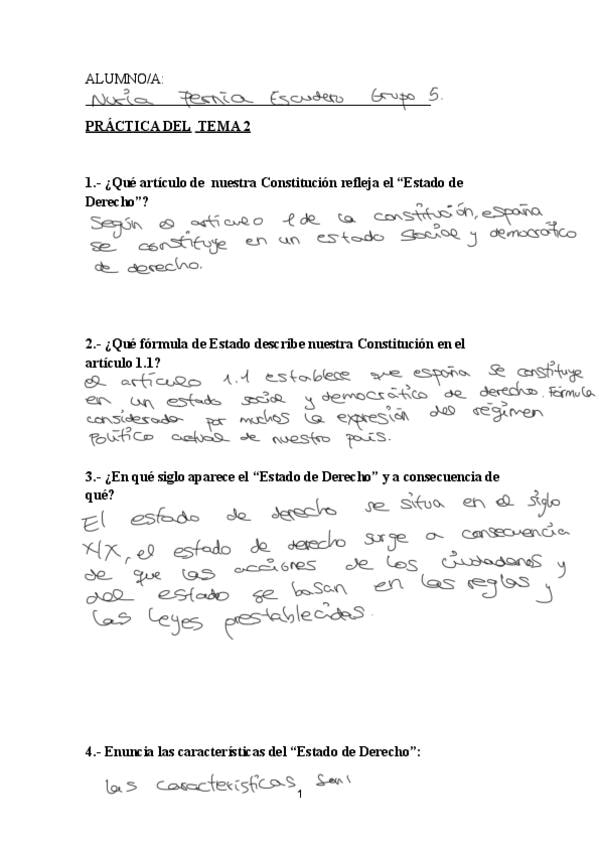 ALUMNO/A:
Nuria Pernia Escudero Grupo 5.
PRÁCTICA DEL TEMA 2
1.- ¿Qué artículo de nuestra Constitución refleja el “Estado de
Derecho”?
Según el artículo 1 de la constitución, españa
se constituye en un estado social y democrático
de derecho.
2.- ¿Qué fórmula de Estado describe nuestra Constitución en el
artículo 1.1?
el artículo 1.1 establece que españa se constituye
en un estado social y democrático de derecho. Fórmula
considerada por muchos la expresión del régimen
político actual de nuestro país.
3.- ¿En qué siglo aparece el “Estado de Derecho” y a consecuencia de
qué?
El estado de derecho se situa en el siglo
XIX, el estado de derecho surge a consecuencia
de que las acciones de los ciudadanos y
del estado se basan en las reglas y
las leyes prestablecidas.
4.- Enuncia las características del “Estado de Derecho”:
las características son:
1